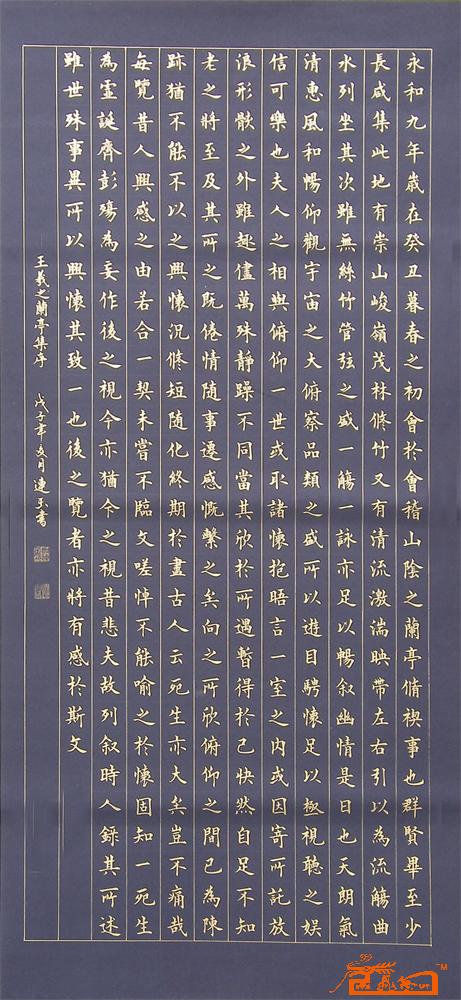 永和九年歲在癸丑暮春之初會於會稽山陰之蘭亭脩禊事也群賢畢至少
長咸集此地有崇山峻嶺茂林脩竹又有清流激湍映帶左右引以為流觴曲
水列坐其次雖無絲竹管弦之盛一觴一詠亦足以暢叙幽情是日也天朗氣
清惠風和暢仰觀宇宙之大俯察品類之盛所以遊目騁懷足以極視聽之娛
信可樂也夫人之相與俯仰一世或取諸懷抱晤言一室之內或因寄所託放
浪形骸之外雖趣儘萬殊靜躁不同當其欣於所遇暫得於己快然自足不知
老之將至及其所之既倦情隨事遷感慨繫之矣向之所欣俯仰之間已為陳
跡猶不能不以之興懷況脩短隨化終期於盡古人云死生亦大矣豈不痛哉
每覽昔人興感之由若合一契未嘗不臨文嗟悼不能喻之於懷固知一死生
為虛誕齊彭殤為妄作後之視今亦猶今之視昔悲夫故列叙時人錄其所述
雖世殊事異所以興懷其致一也後之覽者亦將有感於斯文
王羲之蘭亭集序 戊子年月連書
TM